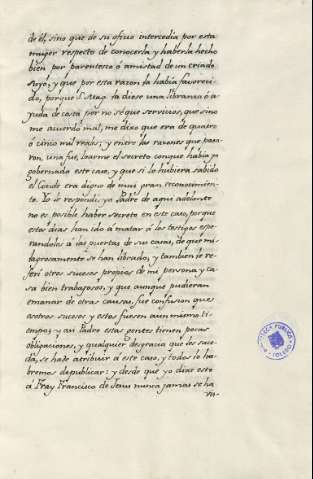 de él, sino que de su oficio intercedia por esta
muger respecto de conocerla y haberla hecho
bien por parentesco ó amistad de un criado
suyo; y que por esta razon la había favoreci-
do, porque S. Mag. la diese una libranza ó a-
yuda de costa por no sé que servicios, que sino
me acuerdo mal, me dixo que era de quatro
ó cinco mil reales; y entre las razones que pasa-
ron, una fue, loarme el secreto conque había yo
gobernado este caso, y que si lo hubiera sabido
el Conde era digno de muy gran reconocimien-
to. Yo le respondí: ya Padre de aqui adelante
no es posible haber secreto en este caso, porque
estos dias han ido á matar á los testigos espe-
randolos á las puertas de sus casas, de que mi-
lagrosamente se han librado; y tambien le re-
ferí otros sucesos propios de mi persona y ca-
sa bien trabajosos, y que aunque pudieran
emanar de otras causas fue confusion que es
estos sucesos y estos fuesen a un mismo ti-
empo; y así Padre estas gentes tienen pocas
obligaciones, y qualquier desgracia que les suce-
da, se ha de atribuir á este caso, y todos lo ha-
bremos de publicar: y desde que yo dixe esto
á Fray Francisco de Jesus nunca jamas se ha
BIBLIOTECA PUBLICA
TOLEDO